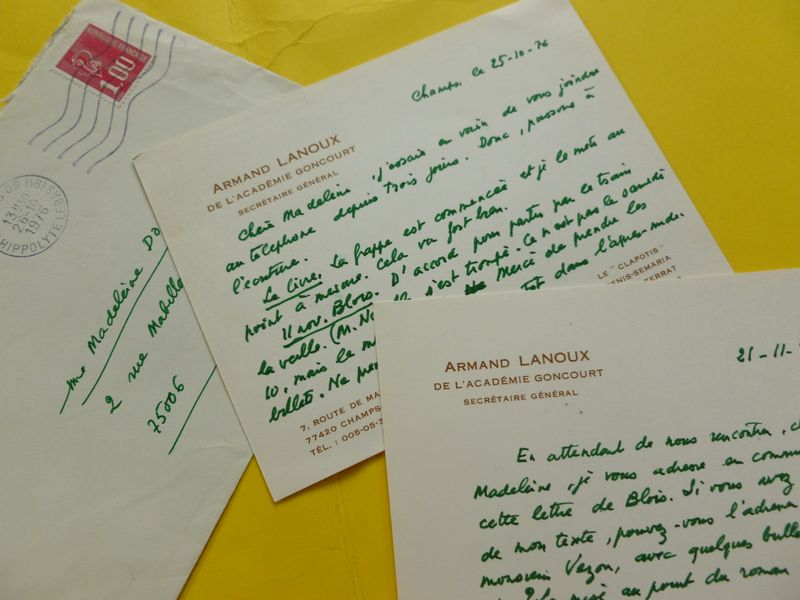 1.00
13H30
26-10
1976
HIPPOLYTE LEBAS (9E)
Mme Madeleine
2 rue Mabillon
75006
ARMAND LANOUX
DE L'ACADÉMIE GONCOURT
SECRÉTAIRE GÉNÉRAL
Champs, le 25-10-76
Chère Madeleine, j'essaie en vain de vous joindre
au téléphone depuis trois jours. Donc, passons à
l'écriture.
Le livre. La frappe est commencée et je le mets au
point à mesure. Cela va fort bien.
11 nov. Blois. D'accord pour partir par le train
la veille. (M. s'est trompé. Ce n'est pas le samedi
10, mais le Merci de prendre les
billets. Ne tôt dans l'après-midi.
7, ROUTE DE MA
77420 CHAMPS
TÉL. : 005-05-3
LE "CLAPOTIS"
ENIS-SEMARIA
FERRAT
ARMAND LANOUX
DE L'ACADÉMIE GONCOURT
SECRÉTAIRE GÉNÉRAL
21-11-
En attendant de nous rencontrer, ch
Madeleine, je vous adresse en commu
cette lettre de Blois. Si vous avez
de mon texte, pouvez-vous l'adresser
monsieur Vezon, avec quelques bulle
au point du roman